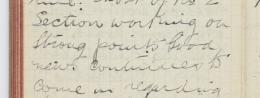 Section working on
strong points. Good
news continues to
come in regarding